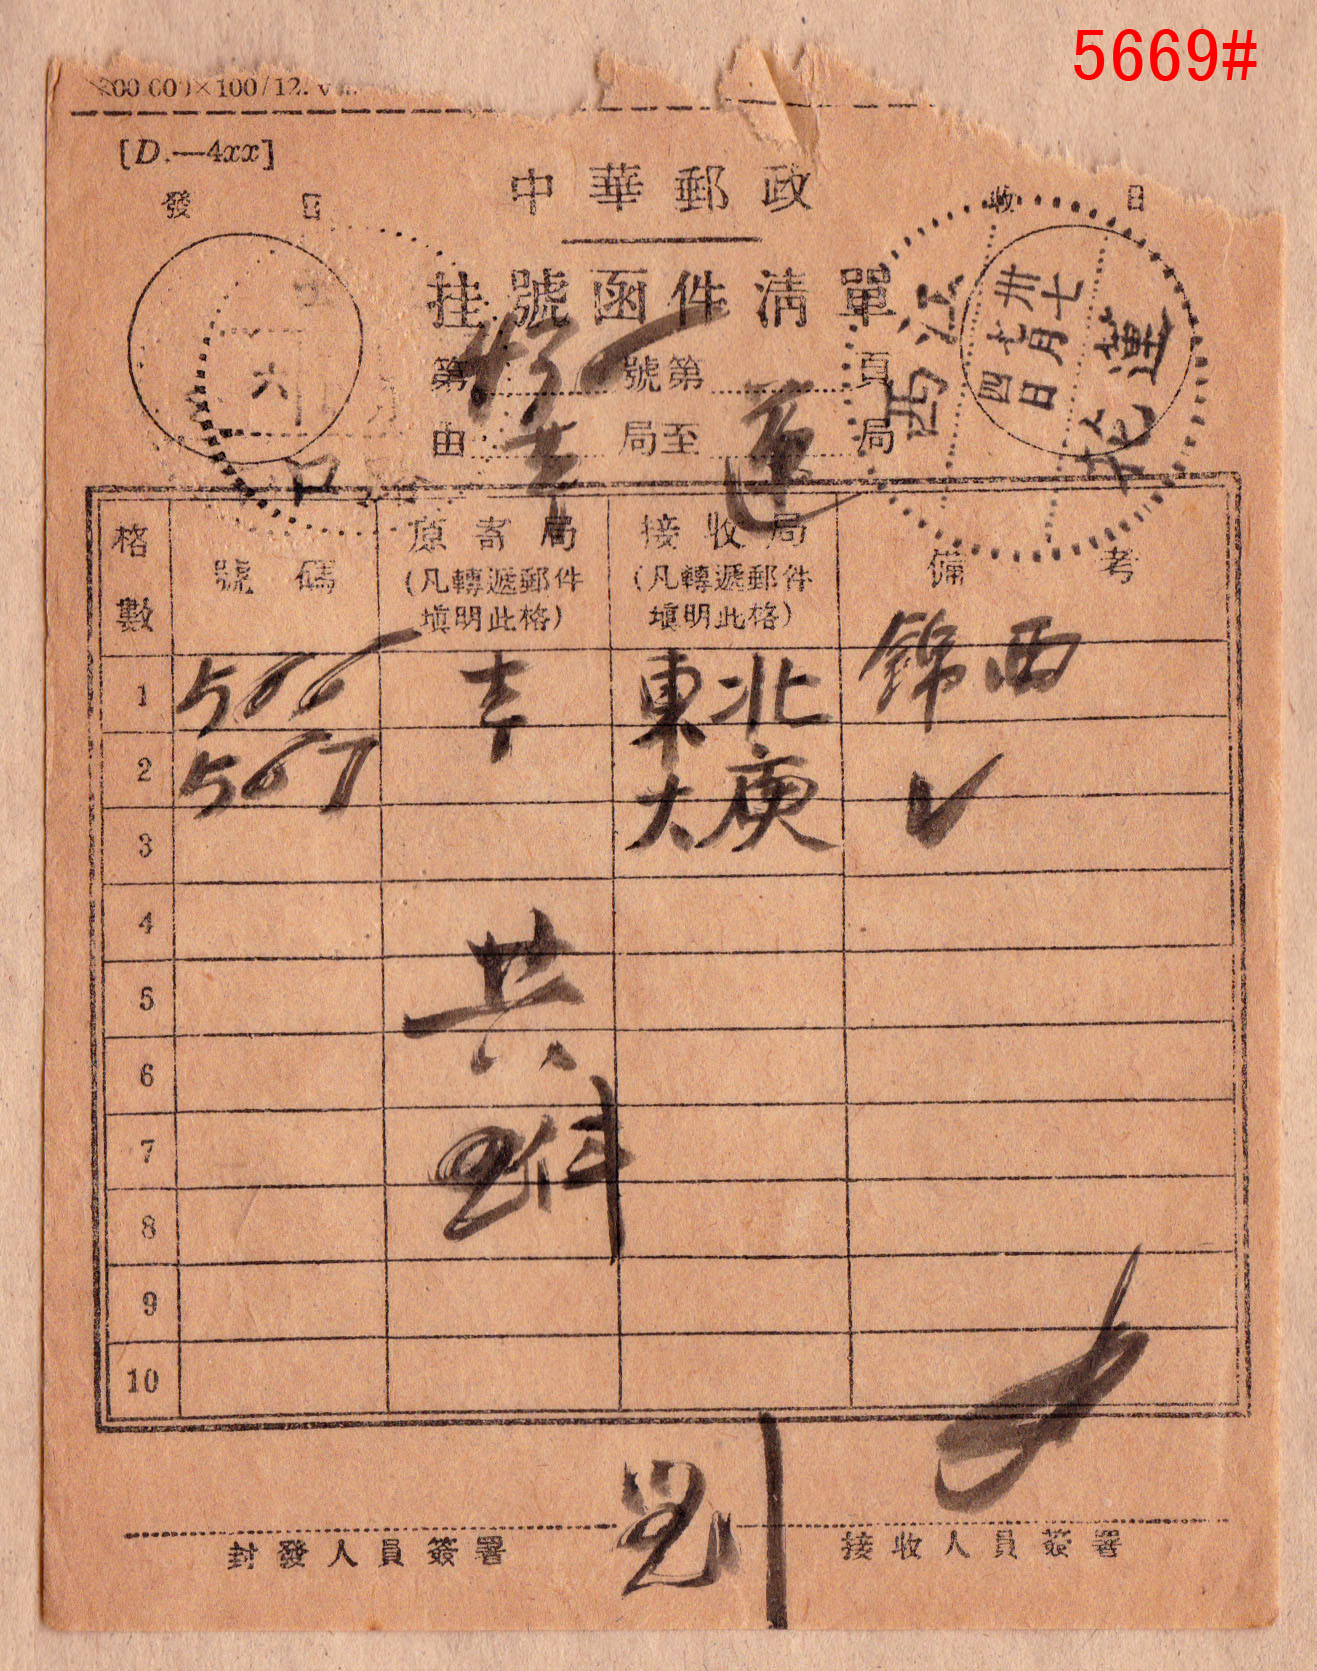 5669#
[D.—4xx]
中華郵政
發 日
收 日
挂號函件清單
第 號第 頁
由 局至 蓮 局
六
江西
卅七
七月
四日
蓮花
格數 號碼 原寄局 接收局 備考
(凡轉遞郵件 (凡轉遞郵件
填明此格) 填明此格)
1 566 吉 東北 錦西
2 567 大庾 ✓
3
4
5
6
7
8
9
10
共
件
劉
封發人員簽署 接收人員簽署